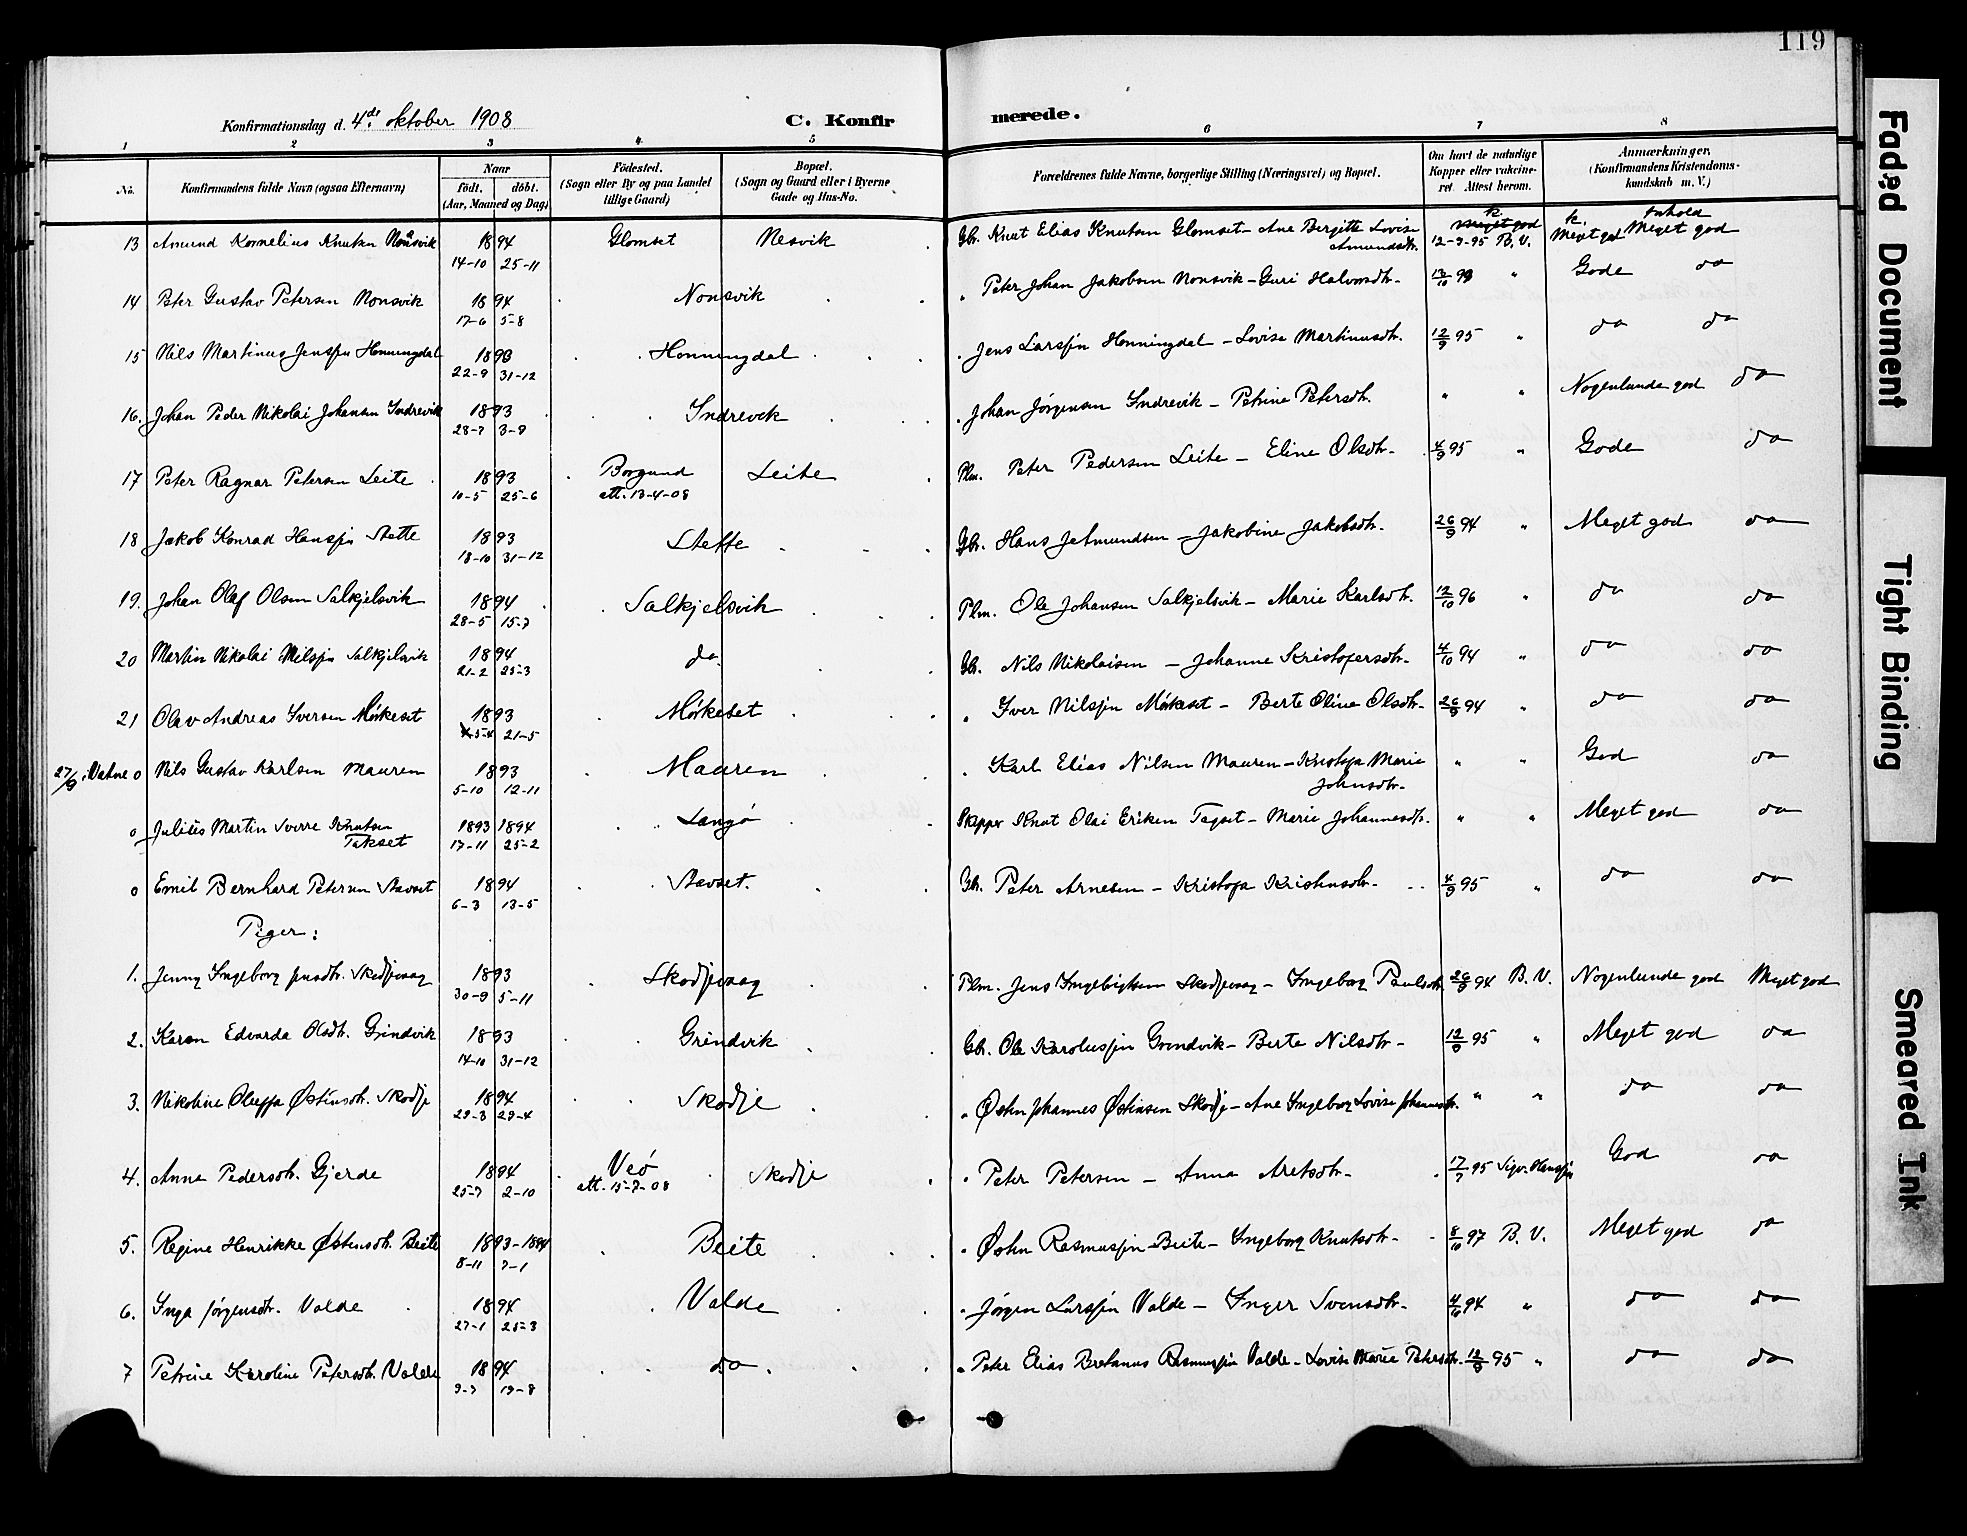 119
Konfirmationsdag d. 4de oktober 1908 C. Konfirmerede.
1 2 3 4 5 6 7 8
No. Konfirmandens fulde Navn (ogsaa Efternavn) Naar født. døbt. (Aar, Maaned og Dag) Fødested. (Sogn eller By og paa Landet tillige Gaard) Bopæl. (Sogn og Gaard eller i Byerne Gade og Hus-No. Forældrenes fulde Navne, borgerlige Stilling (Næringsvei) og Bopæl. Om havt de naturlige Kopper eller vaccineret. Attest herom. Anmærkninger. (Konfirmandens Kristendomskundskab m. V.)
k. Inhold
13 Amund Kornelius Knutsen 1894 14-10 25-11 Glomset Nesvik Gbr. Knut Elias Knutsen Glomset - Ane Birgitte Lovise Amundsdtr. 12-9-95 B.V. Meget god Meget god
14 Peter Gustav Petersen Nonsvik 1894 17-6 5-8 Nonsvik " Peter Johan Jakobsen Nonsvik - Guri Halvorsdtr. 13/10 98 " Gode do
15 Nils Martinus Jenssen Honningdal 1893 22-9 31-12 Honningdal " Jens Larssen Honningdal - Lovise Martinusdtr. 12/9 95 " do do
16. Johan Peder Nikolai Johansen Indrevik 1893 28-7 3-9 Indrevik " Johan Jørgensen Indrevik - Petrine Petersdtr. " " Nogenlunde god do
17 Peter Ragnar Petersen Leite 1893 10-5 25-6 Borgund att. 13-4-08 Leite Plm. Peter Pedersen Leite - Eline Olsdtr. 4/9 95 " Gode do
18 Jakob Konrad Hanssen Stette 1893 18-10 31-12 Stette Gbr. Hans JAmundsen - Jakobine Jakobsdtr. 26/9 94 " Meget god do
19. Johan Olaf Olsen Salkjelsvik 1894 28-5 15-7 Salkjelsvik Plm. Ole Johansen Salkjelsvik - Marie Karlsdtr. 12/10 96 " do do
20 Martin Nikolai Nilssen Salkjelsvik 1894 21-2 25-3 do. Gbr. Nils Nikolaisen - Johanne Kristofersdtr. 4/10 94 " do do
21 Olav Andreas Iversen Mørkeset 1893 21-5 Mørkeset " Iver Nilssen Mørkeset - Berte Oline Olsdtr. 26/9 94 " do do
27/9 i Vatne o Nils Gustav Karlsen Mauren 1893 5-10 12-11 Mauren " Karl Elias Nilsen Mauren - Kristofa Marie Johnsdtr. " " God do
o Julius Martin Sverre Knutsen Takset 1893 1894 17-11 25-2 Langø Skipper Knut Olai Eriksen Tagset - Marie Johannesdtr. " " Meget god do
o Emil Bernhard Petersen Stavset 1894 6-3 13-5 Stavset. Gbr. Peter Arnesen - Kristofa Kristensdtr. 4/9 95 " do do
Piger:
1. Jenny Ingeborg Jensdtr. Skodjevaag 1893 30-9 5-11 Skodjevaag Plm. Jens Ingebrigtsen Skodjevaag - Ingeborg Paulsdtr. 26/9 94 B.V. Nogenlunde god Meget god
2. Karen Edvarda Olsdtr. Grindvik 1893 14-10 31-12 Grindvik Gbr. Ole Karolussen Grindvik - Berte Nilsdtr. 12/9 95 " Meget god do
3. Nikoline Oluffa Østensdtr. Skodje 1894 29-3 29-4 Skodje " Østen Johannes Østensen Skodje - Ane Ingeborg Lovise Johannesdtr. " " do do
4. Anna Pedersdtr. Gjerde 1894 25-7 2-10 Veø att. 15-7-08 Skodje " Peter Petersen - Anna Aretsdtr. 17/7 95 Sigv. Hanssen God do
5. Regine Henrikke Østensdtr. Beite 1893-1894 8-11 7-1 Beite " Østen Rasmussen Beite - Ingeborg Knutsdtr. 8/10 97 B.V. Meget god do
6. Inga Jørgensdtr. Valde 1894 27-1 25-3 Valde " Jørgen Larssen Valde - Inger Svensdtr. 4/10 94 " do do
7 Petrine Karoline Petersdtr. Valde 1894 9-7 19-8 do. " Peter Elias Bretanus Rasmussen Valde - Lovise Marie Petersdtr. 12/9 95 " do do
Faded Document
Tight Binding
Smeared Ink